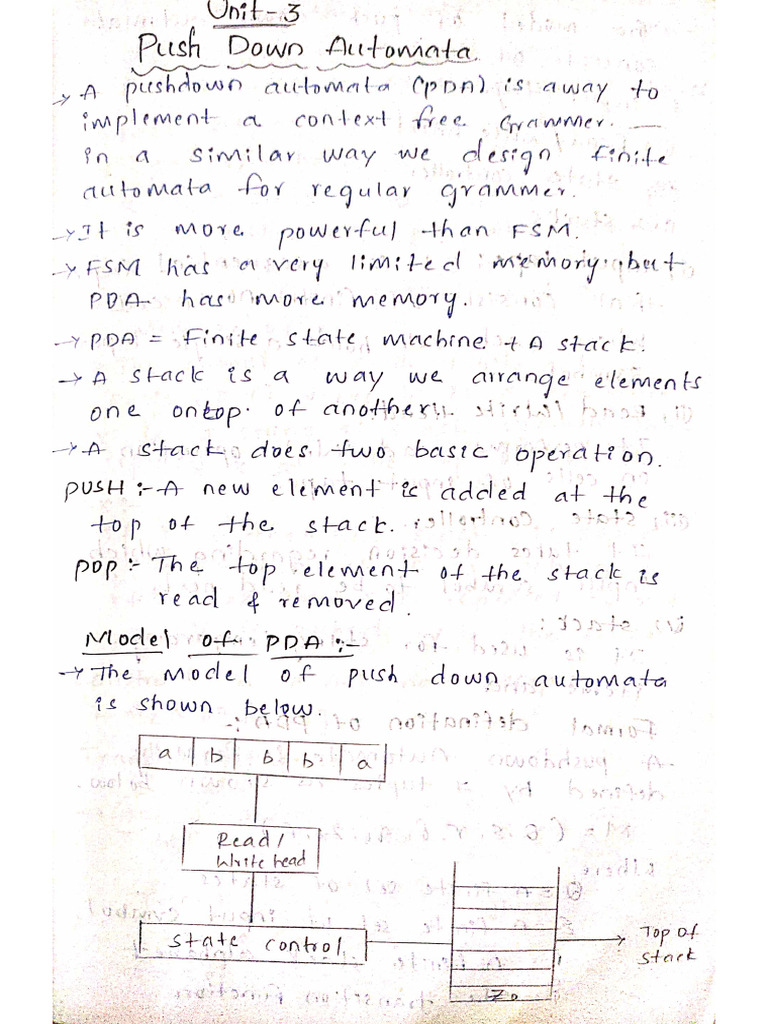 Unit-3
Push Down Automata
→ A pushdown automata (PDA) is away to
implement a context free Grammer. —
in a similar way we design finite
automata for regular grammer.
→ It is more powerful than FSM.
→ FSM has a very limited memory but
PDA has more memory.
→ PDA = Finite state machine + A stack.
→ A stack is a way we arrange elements
one ontop of another.
→ A stack does two basic operation.
PUSH :- A new element is added at the
top of the stack.
POP :- The top element of the stack is
read & removed.
Model of PDA :-
→ The model of push down automata
is shown below.
a b b b a
Read/
Write head
State control
Top of
stack
Z0